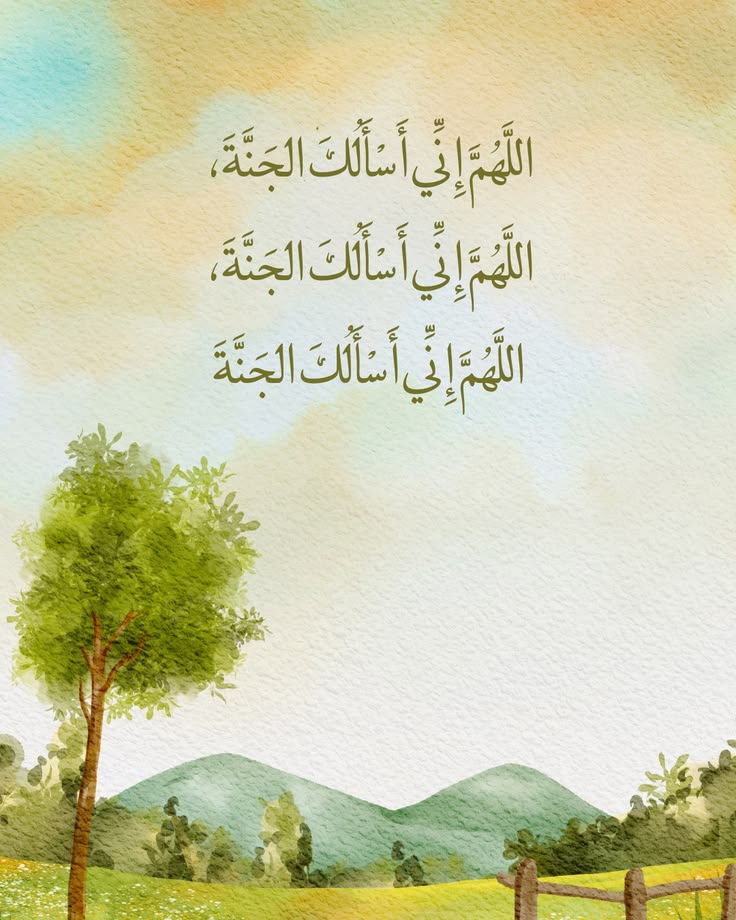 اللَّهُمَّ إِنِّي أَسْأَلُكَ الجَنَّةَ،
اللَّهُمَّ إِنِّي أَسْأَلُكَ الجَنَّةَ،
اللَّهُمَّ إِنِّي أَسْأَلُكَ الجَنَّةَ